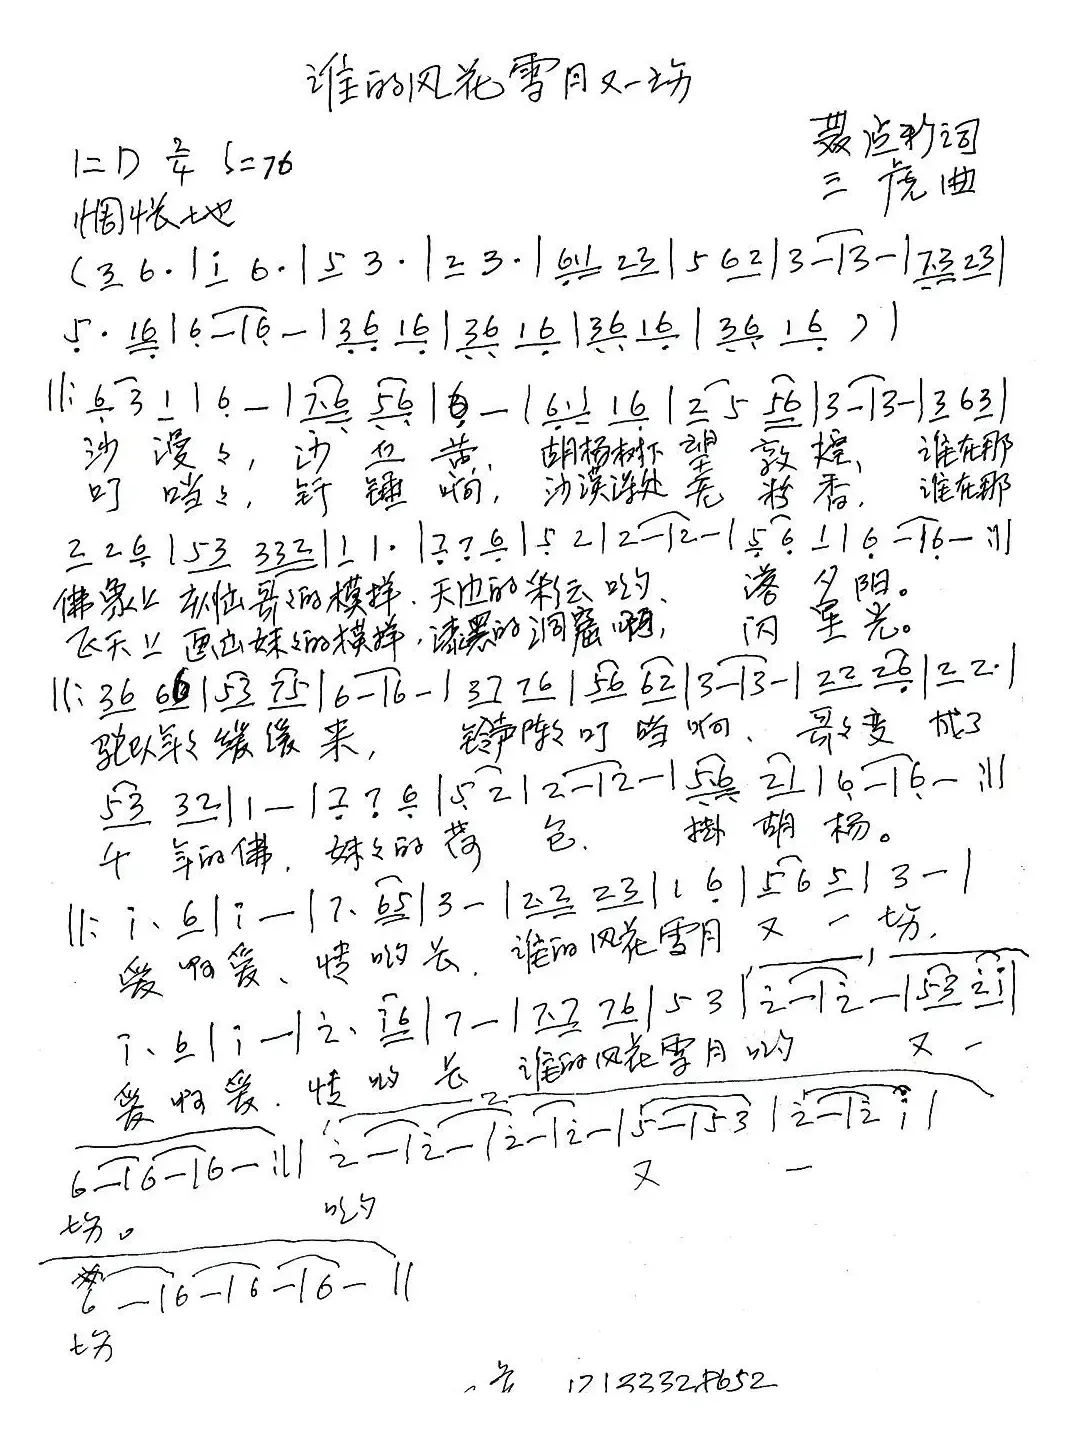 谁的风花雪月又一场
聂造彩词
1=D 2/4 ♩=76
三虎曲
惆怅地
(3 6·|i 6·|5 3·|2 3·|61 23|5 62|3-|3-|7·3 23|
5· 16|6-|6-|36 16|36 16|36 16|36 16)|
||:6 3 1|6-|7·6 56|6-|61 16|2 5 56|3-|3-|3 63|
沙漫々,沙丘苦,胡杨树下望敦煌,谁在那
叮当々,钎锤响,沙漠深处羌粉香,谁在那
2 2 6|53 332|1 1·|7 7 6|5 2|2-|2-|5 6 1|6-|6-:||
佛象上刻出哥々的模样,天边的彩云哟,落夕阳。
飞天上画出妹々的模样,漆黑的洞窟啊,闪星光。
||:36 66|53 75|6-|6-|37 76|56 62|3-|3-|22 26|2 2·|
驼队年々缓缓来,铃声阵々叮当响,哥々变成了
53 32|1-|7 7 6|5 2|2-|2-|5·6 21|6-|6-:||
千年的佛,妹々的荷包,掛胡杨。
||:i· 6|i-|7· 65|3-|2·2 23|1 6|5 6 5|3-|
爱啊爱、情哟长,谁的风花雪月又一场,
i· 6|i-|2· i6|7-|7·7 76|5 3|2-|2-|53 2i|
爱啊爱,情哟长谁的风花雪月哟又一
6-|6-|6-:||2-|2-|2-|2-|5-|5 3|2-|2 i|
场。哟又一
6-|6-|6-|6-||
场